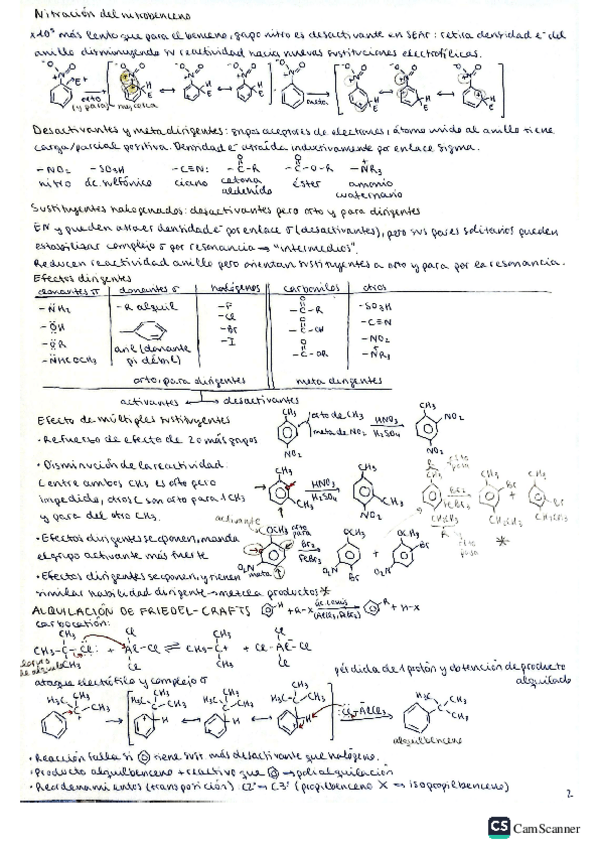 Nitración del nitrobenceno
x10⁵ más lento que para el benceno, grupo nitro es desactivante en SEAr: retira densidad e⁻ del
anillo disminuyendo su reactividad hacia nuevas sustituciones electrofílicas.
orto
(y para)
meta
Desactivantes y meta dirigentes: grupos aceptores de electrones, átomo unido al anillo tiene
carga/parcial positiva. Densidad e⁻ atraída inductivamente por enlace sigma.
-NO₂ -SO₃H -C≡N: -C-R -C-O-R -NR₃
nitro ác. sulfónico ciano cetona éster amonio
aldehído cuaternario
Sustituyentes halogenados: desactivantes pero orto y para dirigentes
EN y pueden atraer densidad e⁻ por enlace σ (desactivantes), pero sus pares solitarios pueden
estabilizar complejo σ por resonancia → "intermedios".
Reducen reactividad anillo pero orientan sustituyentes a orto y para por la resonancia.
Efectos dirigentes
donantes π donantes σ halógenos carbonilos otros
-NH₂ -R alquil -F -C-R -SO₃H
-OH -Cl -C≡N
-OR -Br -NO₂
-NHCOCH₃ aril (donante pi débil) -I -C-OR -NR₃
orto, para dirigentes meta dirigentes
activantes desactivantes
Efecto de múltiples sustituyentes
CH₃ orto de CH₃ meta de NO₂ NO₂ HNO₃ H₂SO₄ CH₃ NO₂ NO₂
• Refuerzo de efecto de 2 o más grupos
• Disminución de la reactividad:
Centre ambos CH₃ es orto pero
impedido, otros C son orto para 1 CH₃
y para del otro CH₃.
CH₃ CH₃ HNO₃ H₂SO₄ CH₃ CH₃ NO₂
activante
• Efectos dirigentes se oponen, manda
el grupo activante más fuerte
OCH₃ orto para O₂N meta Br₂ FeBr₃ OCH₃ O₂N Br + OCH₃ Br O₂N
• Efectos dirigentes se oponen, y tienen
similar habilidad dirigente → mezcla productos *
ALQUILACIÓN DE FRIEDEL-CRAFTS H + R-X ác. Lewis (AlCl₃, FeBr₃) R + H-X
carbocatión:
CH₃ Cl CH₃ Cl
CH₃-C-Cl: + Al-Cl ⇌ CH₃-C+ + Cl-Al-Cl
CH₃ Cl CH₃ Cl
ataque electrófilo y complejo σ
pérdida de 1 protón y obtención de producto
alquilado
alquilbenceno
• Reacción falla si tiene sust. más desactivante que halógeno.
• Producto alquilbenceno + reactivo que → polialquilación
• Reordenamientos (transposición) C2⁺ → C3⁺ (propilbenceno X → isopropilbenceno)
2
CS CamScanner